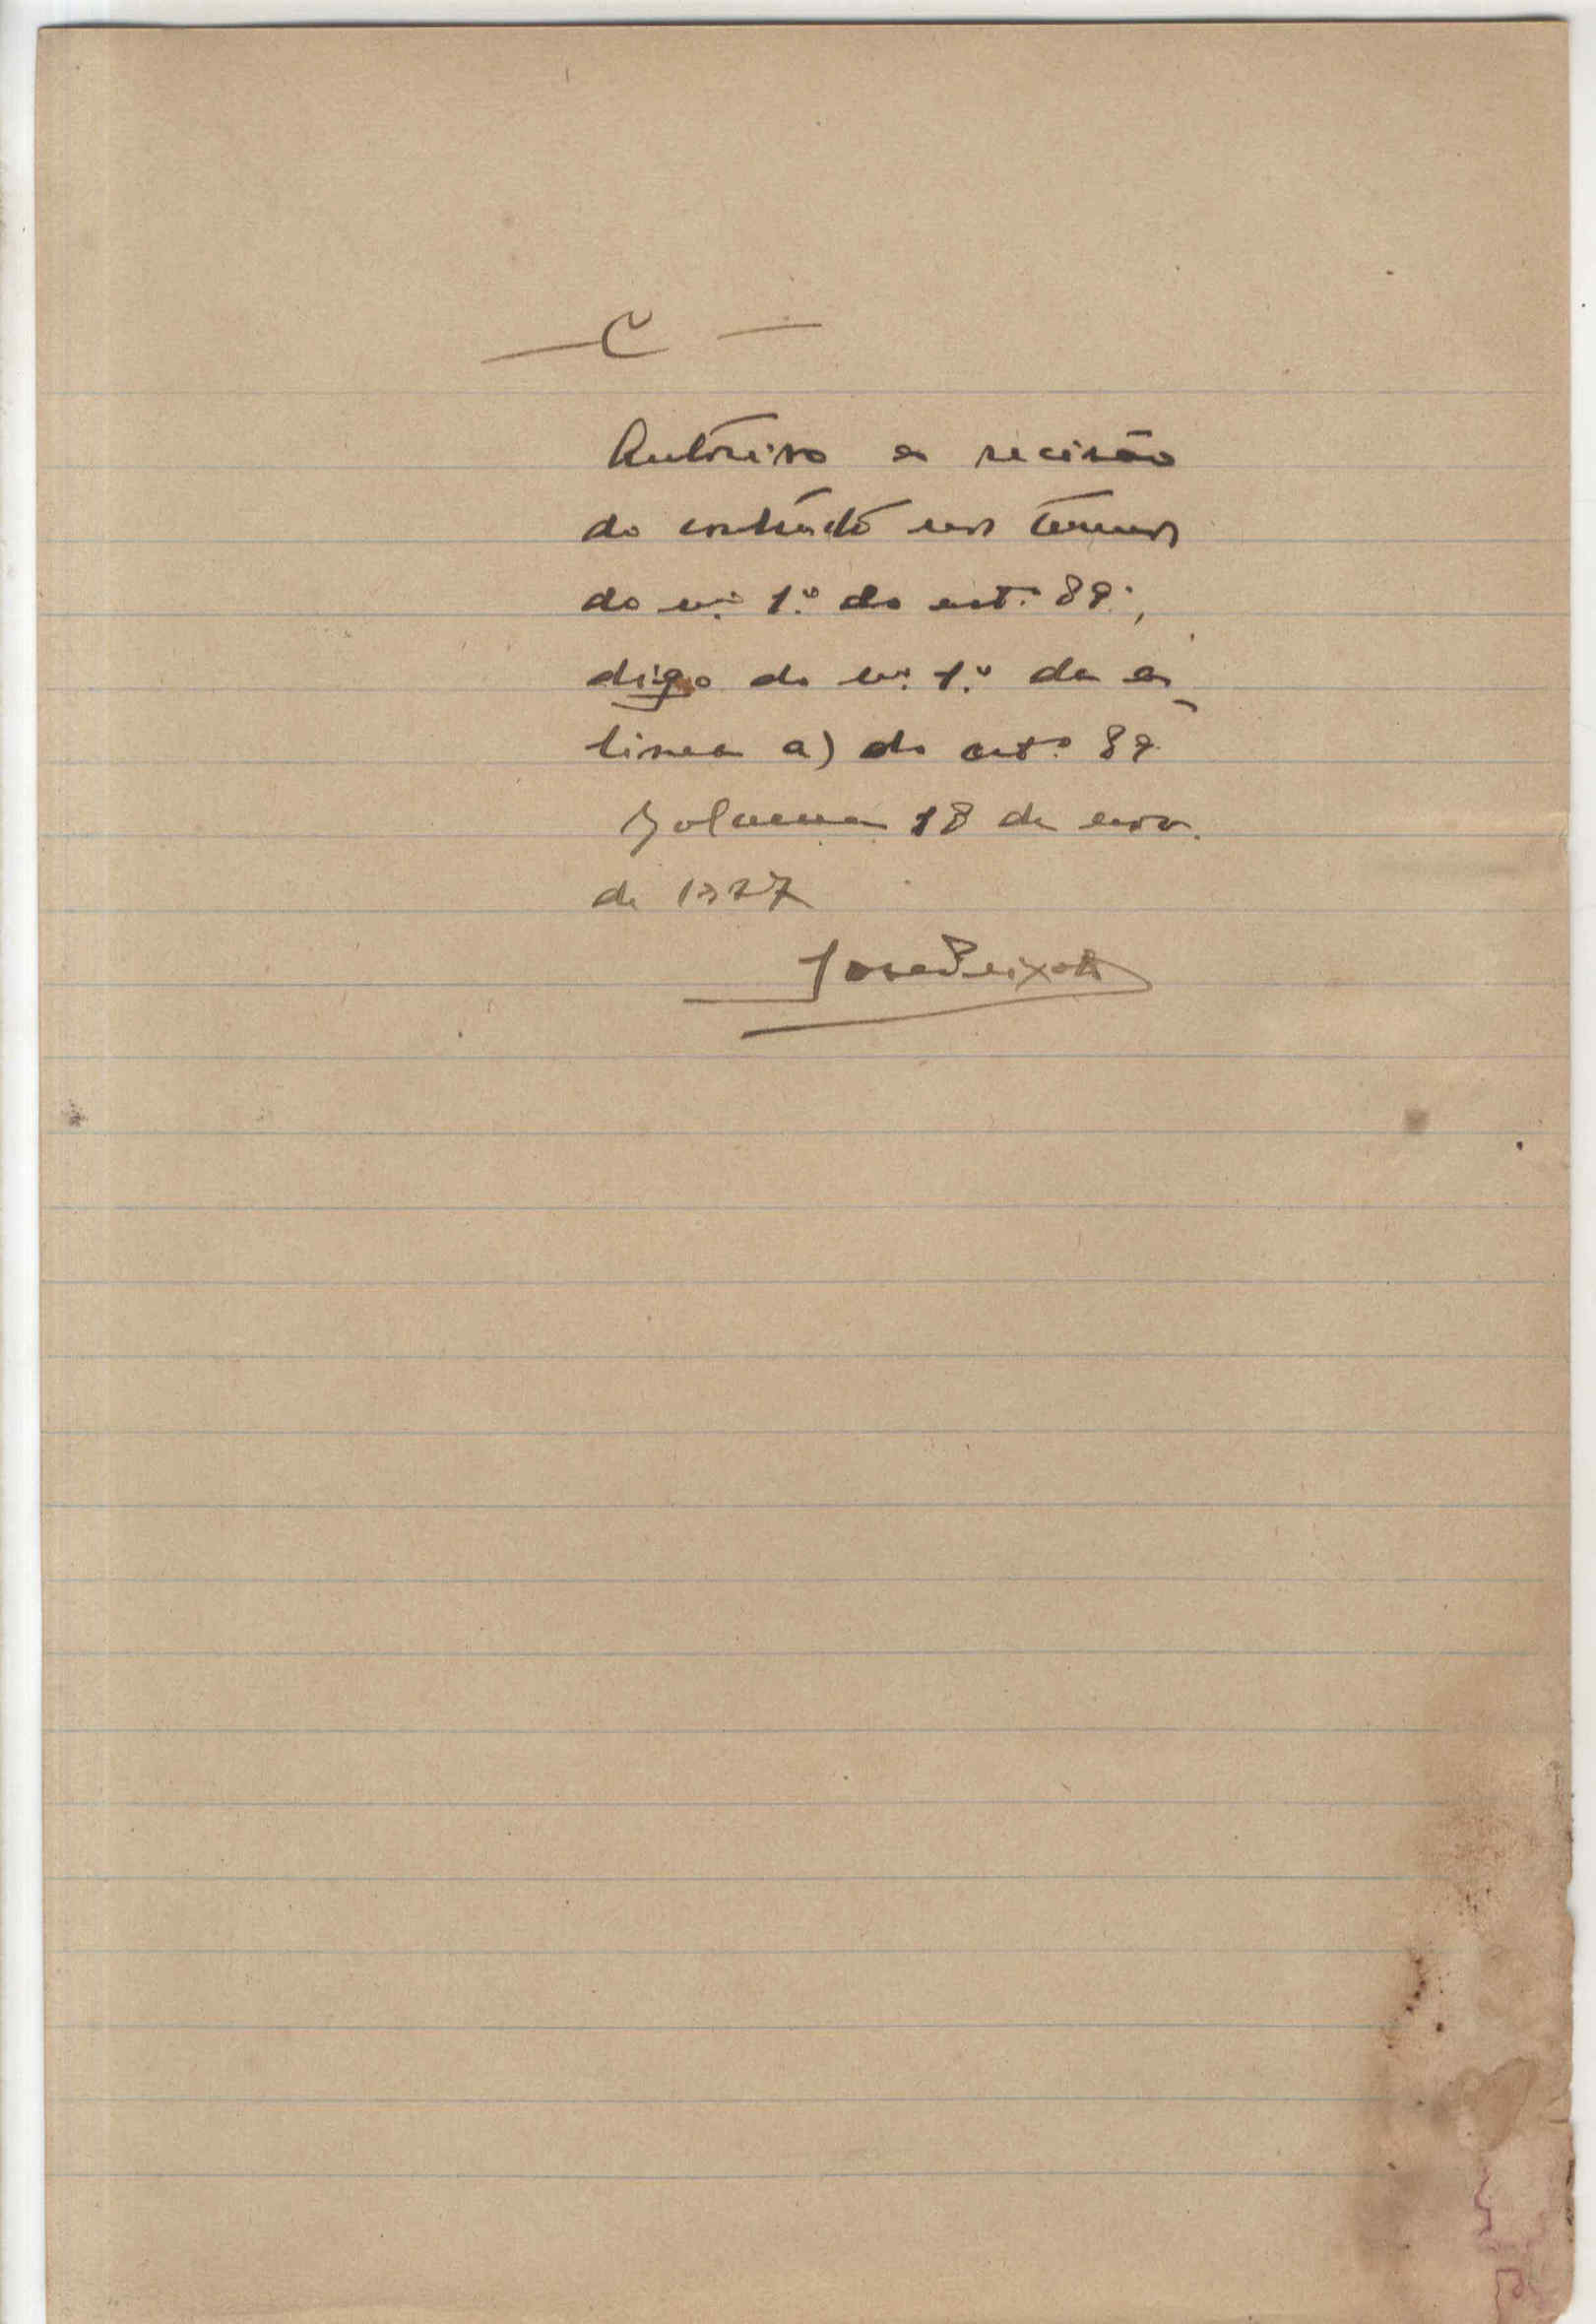 C
Autoriso a recisão
do contracto nos termos
do nº 1.º do art.º 89.º,
digo do nº 1.º da a-
linea a) do art.º 89
Bolama 18 de nov.
de 1927
José Peixoto